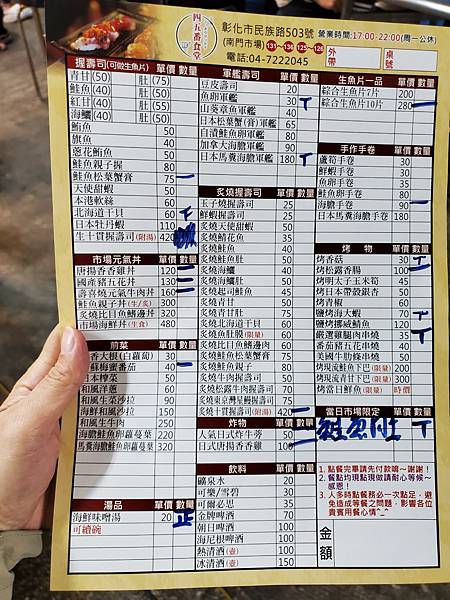 四五番食堂
彰化市民族路503號
(南門市場)131~136 125~126
電話:04-7222045
營業時間:17:00-22:00(周一公休)
外帶
桌號
握壽司(可做生魚片) 單價 數量
青甘(50) 肚(75)
鮭魚(40) 肚(55)
紅甘(50) 肚(75)
海鱺(40) 肚(55)
鮪魚 50
旗魚 40
蔥花鮪魚 50
鮭魚親子握 80
鮭魚松葉蟹膏 75 一
天使甜蝦 50
本港軟絲 60
北海道干貝 60 T
日本牡丹蝦 110
生十貫握壽司(附湯) 420
市場元氣丼 單價 數量
唐揚香香雞丼 120
國產豬五花丼 130
壽喜燒元氣牛肉丼 160
鮭魚親子丼(生/炙) 300
炙燒比目魚鰭邊丼 320
市場海鮮丼(生食) 480
前菜 單價 數量
香大根(白蘿蔔) 30
蘇梅蜜番茄 40 一
日本榨菜 50
和風洋蔥 60
和風生菜沙拉 90
海鮮和風沙拉 150
和風生牛肉 250
海膽鮭魚卵蘿蔓葉 220
馬糞海膽魚卵蘿蔓葉 320
湯品 單價 數量
海鮮味噌湯 20 正
可續碗
軍艦壽司 單價 數量
豆皮壽司 20
魚卵軍艦 30 T
山葵章魚軍艦 40
日本松葉蟹(膏)軍艦 65
自漬鮭魚卵軍艦 80
加拿大海膽軍艦 100
日本馬糞海膽軍艦 180 T
炙燒握壽司 單價 數量
玉子燒握壽司 25
鮮蝦握壽司 25
炙燒天使甜蝦 50
炙燒鯖花魚 35
炙燒鮭魚 40
炙燒鮭魚肚 50
炙燒海鱺 40
炙燒海鱺肚 50
炙燒起司鮭魚 45
炙燒青甘 50
炙燒青甘肚 75
炙燒魚肚膜(限量) 60
炙燒比目魚鰭邊肉 60
炙燒鮭魚松葉蟹膏 75
炙燒牛肉握壽司 50
炙燒松露牛肉握壽司 60
炙燒東京灣星鰻握壽司 75
炙燒十貫握壽司(附湯) 420
炸物 單價 數量
人氣日式炸牛蒡 50
日式唐揚香香雞 100
飲料 單價 數量
礦泉水 20
可樂/雪碧 30
可爾必思 35
金牌啤酒 70
朝日啤酒 100
海尼根啤酒 100
熱清酒(壺) 100
冰清酒(壺) 150
生魚片一品 單價 數量
綜合生魚片7片 200
綜合生魚片10片 280 一
手作手卷 單價 數量
蘆筍手卷 30
鮮蝦手卷 30
魚卵手卷 35
鮭魚卵手卷 80
海膽手卷 90 一
日本馬糞海膽手卷 180
烤物 單價 數量
烤香菇 30
烤松露香腸 60
烤明太子玉米筍 45
烤日本帶殼銀杏 50
烤青椒 60
鹽烤海大蝦 70 T
鹽烤挪威鯖魚 120
嚴選雞腿肉串燒 35 T
番茄豬五花串燒 40
美國牛肋條串燒 50
烤現流鮭魚下巴(限量) 200
烤現流青甘下巴(限量) 300
烤當日鮮魚(限量) 時價
當日市場限定 單價 數量
鮭魚肚 T
1. 點餐完畢請先付款喲~謝謝!
2. 餐點均現點現做請耐心等候~感恩!
3. 人多時點餐務必一次點足,避免造成等餐之問題,影響各位貴賓用餐心情^_^
金額